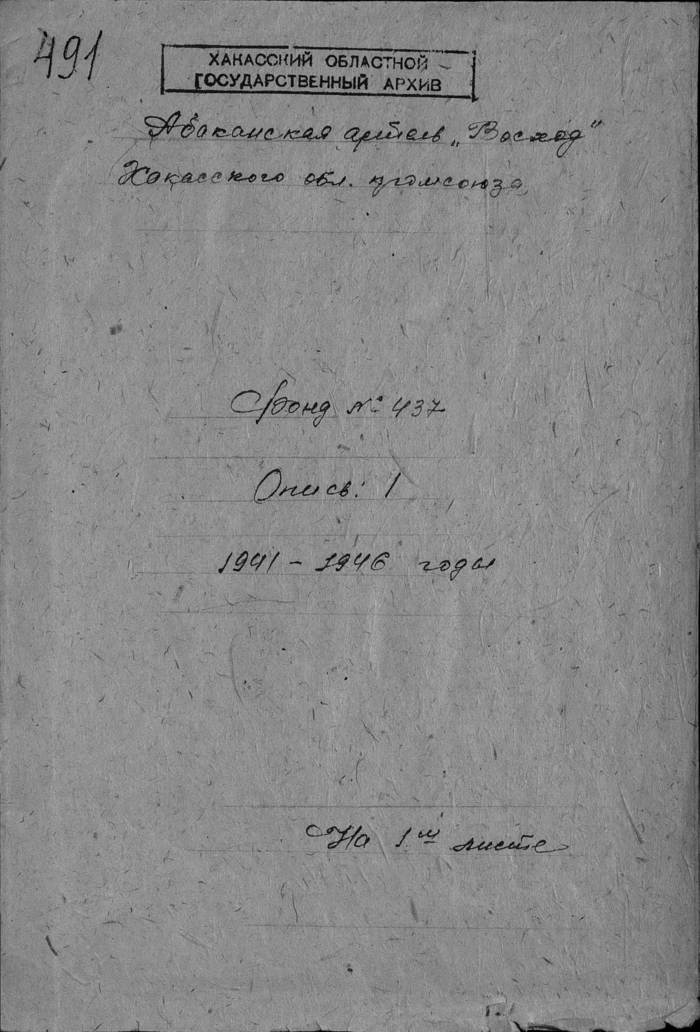 491
ХАКАССКИЙ ОБЛАСТНОЙ
ГОСУДАРСТВЕННЫЙ АРХИВ
Абаканская артель „Восход"
Хакасского обл. промсоюза
Фонд № 437
Опись: 1
1941 – 1946 годы
На 1м листе